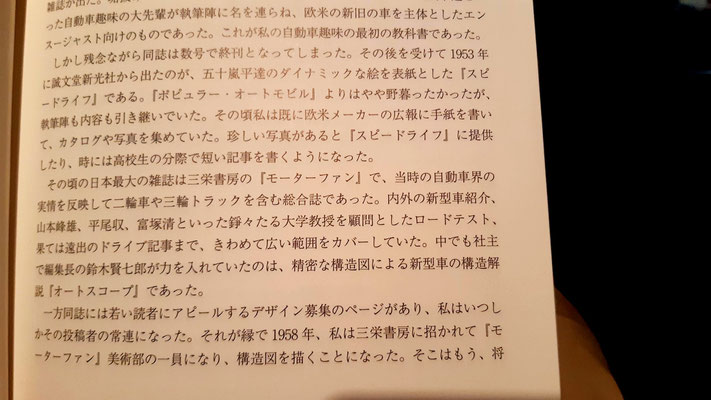 雑誌が出た。
った自動車趣味の大先輩が執筆陣に名を連らね、欧米の新旧の車を主体としたエン
スージャスト向けのものであった。これが私の自動車趣味の最初の教科書であった。
しかし残念ながら同誌は数号で終刊となってしまった。その後を受けて1953年
に誠文堂新光社から出たのが、五十嵐平達のダイナミックな絵を表紙とした『スピ
ードライフ』である。『ポピュラー・オートモビル』よりはやや野暮ったかったが、
執筆陣も内容も引き継いでいた。その頃私は既に欧米メーカーの広報に手紙を書い
て、カタログや写真を集めていた。珍しい写真があると『スピードライフ』に提供
したり、時には高校生の分際で短い記事を書くようになった。
その頃の日本最大の雑誌は三栄書房の『モーターファン』で、当時の自動車界の
実情を反映して二輪車や三輪トラックを含む総合誌であった。内外の新型車紹介、
山本峰雄、平尾収、富塚清といった錚々たる大学教授を顧問としたロードテスト、
果ては遠出のドライブ記事まで、きわめて広い範囲をカバーしていた。中でも社主
で編集長の鈴木賢七郎が力を入れていたのは、精密な構造図による新型車の構造解
説『オートスコープ』であった。
一方同誌には若い読者にアピールするデザイン募集のページがあり、私はいつし
かその投稿者の常連になった。それが縁で1958年、私は三栄書房に招かれて『モ
ーターファン』美術部の一員になり、構造図を描くことになった。そこはもう、将